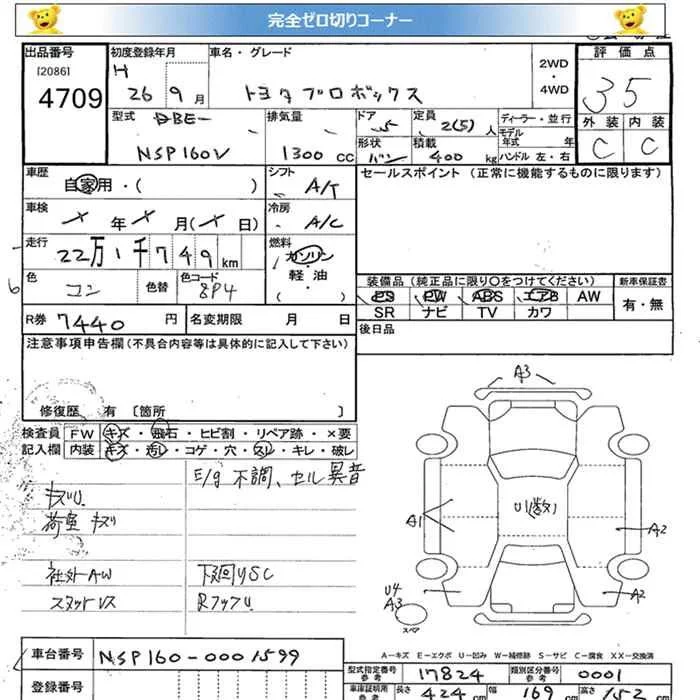 完全ゼロ切りコーナー
出品番号 初度登録年月 車名・グレード 2WD・4WD 評価点
[2086]
4709 H 26 9月 トヨタ プロボックス 35
型式 DBE- 排気量 ドア 5 定員 2(5)人 ディーラー・並行 外装 内装
NSP160V 1300 CC 形状 バン 積載 400 kg モデル年式 年 C C
ハンドル 左・右
車歴 自家用・( ) シフト A/T セールスポイント (正常に機能するものに限ります)
車検 年 月( 日) 冷房 A/C
走行 22万1千749km 燃料 ガソリン 軽・油 ・( )
色 コン 色替 色コード 8P4
装備品(純正品に限り〇をつけてください) 新車保証書
PS PW ABS エアB AW 有・無
SR ナビ TV カワ
R券 7440円 名変期限 月 日 後日品
注意事項申告欄(不具合内容等は具体的に記入して下さい)
修復歴 有 〔箇所 〕
検査員 FW キズ・飛石・ヒビ割・リペア跡・×要
記入欄 内装 キズ・汚レ・コゲ・穴・スレ・キレ・破レ
E/g 不調、セル異音
キズU
荷室 キズ
社外AW 下廻りSC
スタッドレス
A3
A1
U1(数)
A2
A2
U4
A3
スペア
A-キズ E-エクボ U-凹み W-補修跡 S-サビ C-腐食 XX-交換済
車台番号 NSP160-0001599
型式指定番号 参考 17824 類別区分番号 参考 0001
登録番号
車庫証明用 参考 長さ 424 cm 幅 169 cm 高さ 152 cm